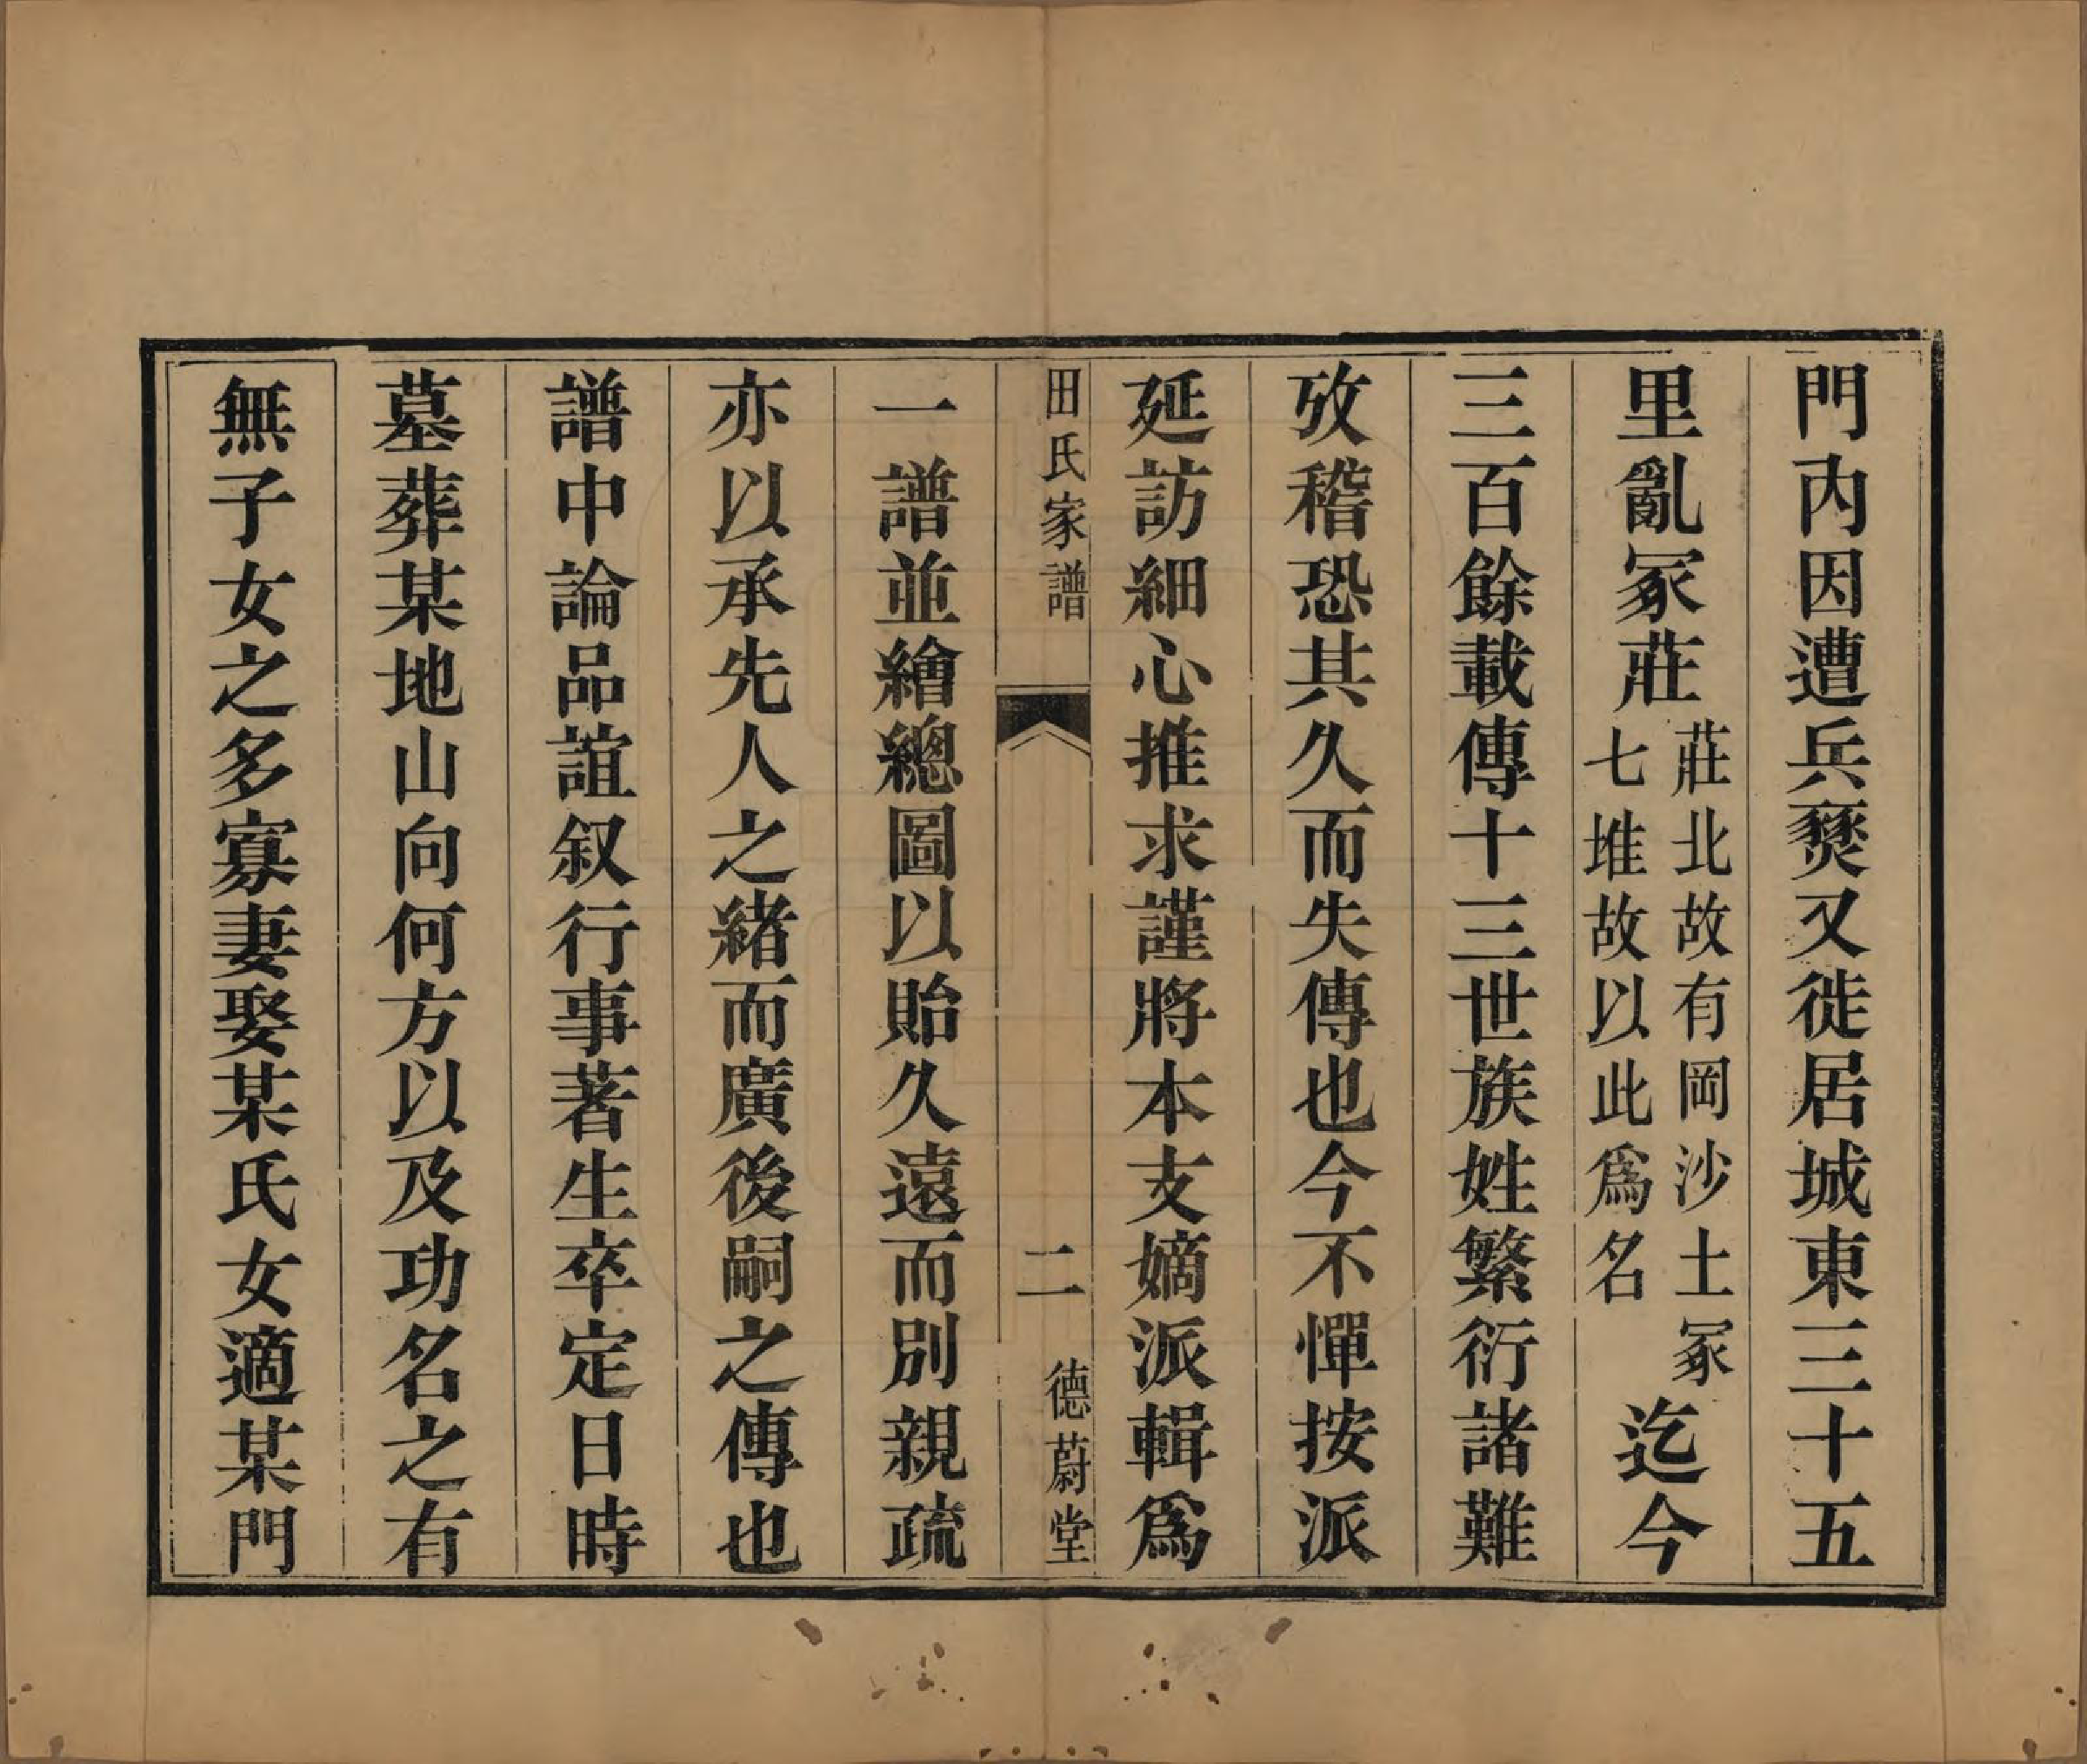 門內因遭兵燹又徙居城東三十五
里亂冢莊
莊北故有岡沙土冢
七堆故以此爲名
迄今
三百餘載傳十三世族姓繁衍諸難
攷稽恐其久而失傳也今不憚按派
延訪細心推求謹將本支嫡派輯爲
田氏家譜
二
德蔚堂
一譜並繪總圖以貽久遠而別親疏
亦以承先人之緒而廣後嗣之傳也
譜中論品誼叙行事著生卒定日時
墓葬某地山向何方以及功名之有
無子女之多寡妻娶某氏女適某門